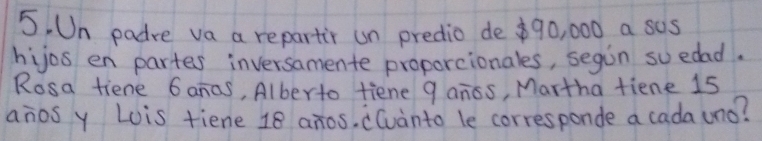 5. Un padre va a repartir un predio de $90,000 a sus
hijos en partes inversamente proporcionales, según su edad.
Rosa tiene 6 años, Alberto tiene 9 años, Martha tiene 15
años y Luis tiene 18 años. ¿Cuánto le corresponde a cada uno?